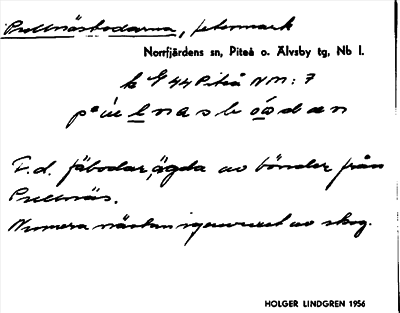 Pullnäsbodarna, schemark
Norrfjärdens sn, Piteå o. Älvsby tg, Nb l.
k G 44 Piteå NM: 7
F.d. fäbodar, ägda av bönder från
Pullnäs.
Numera nästan igenvuxet av skog.
HOLGER LINDGREN 1956